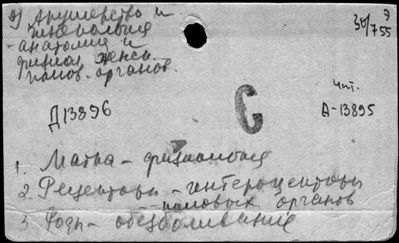 9) Акушерство и
гинекология
- анатомия и
физиол. женск.
полов. органов.
30/755
Э
Чит.
Д13896
А-13895
С
1. Матка - физиология
2. Рецепторы - интероцепторы
- половых органов
3. Роды - обезболивание